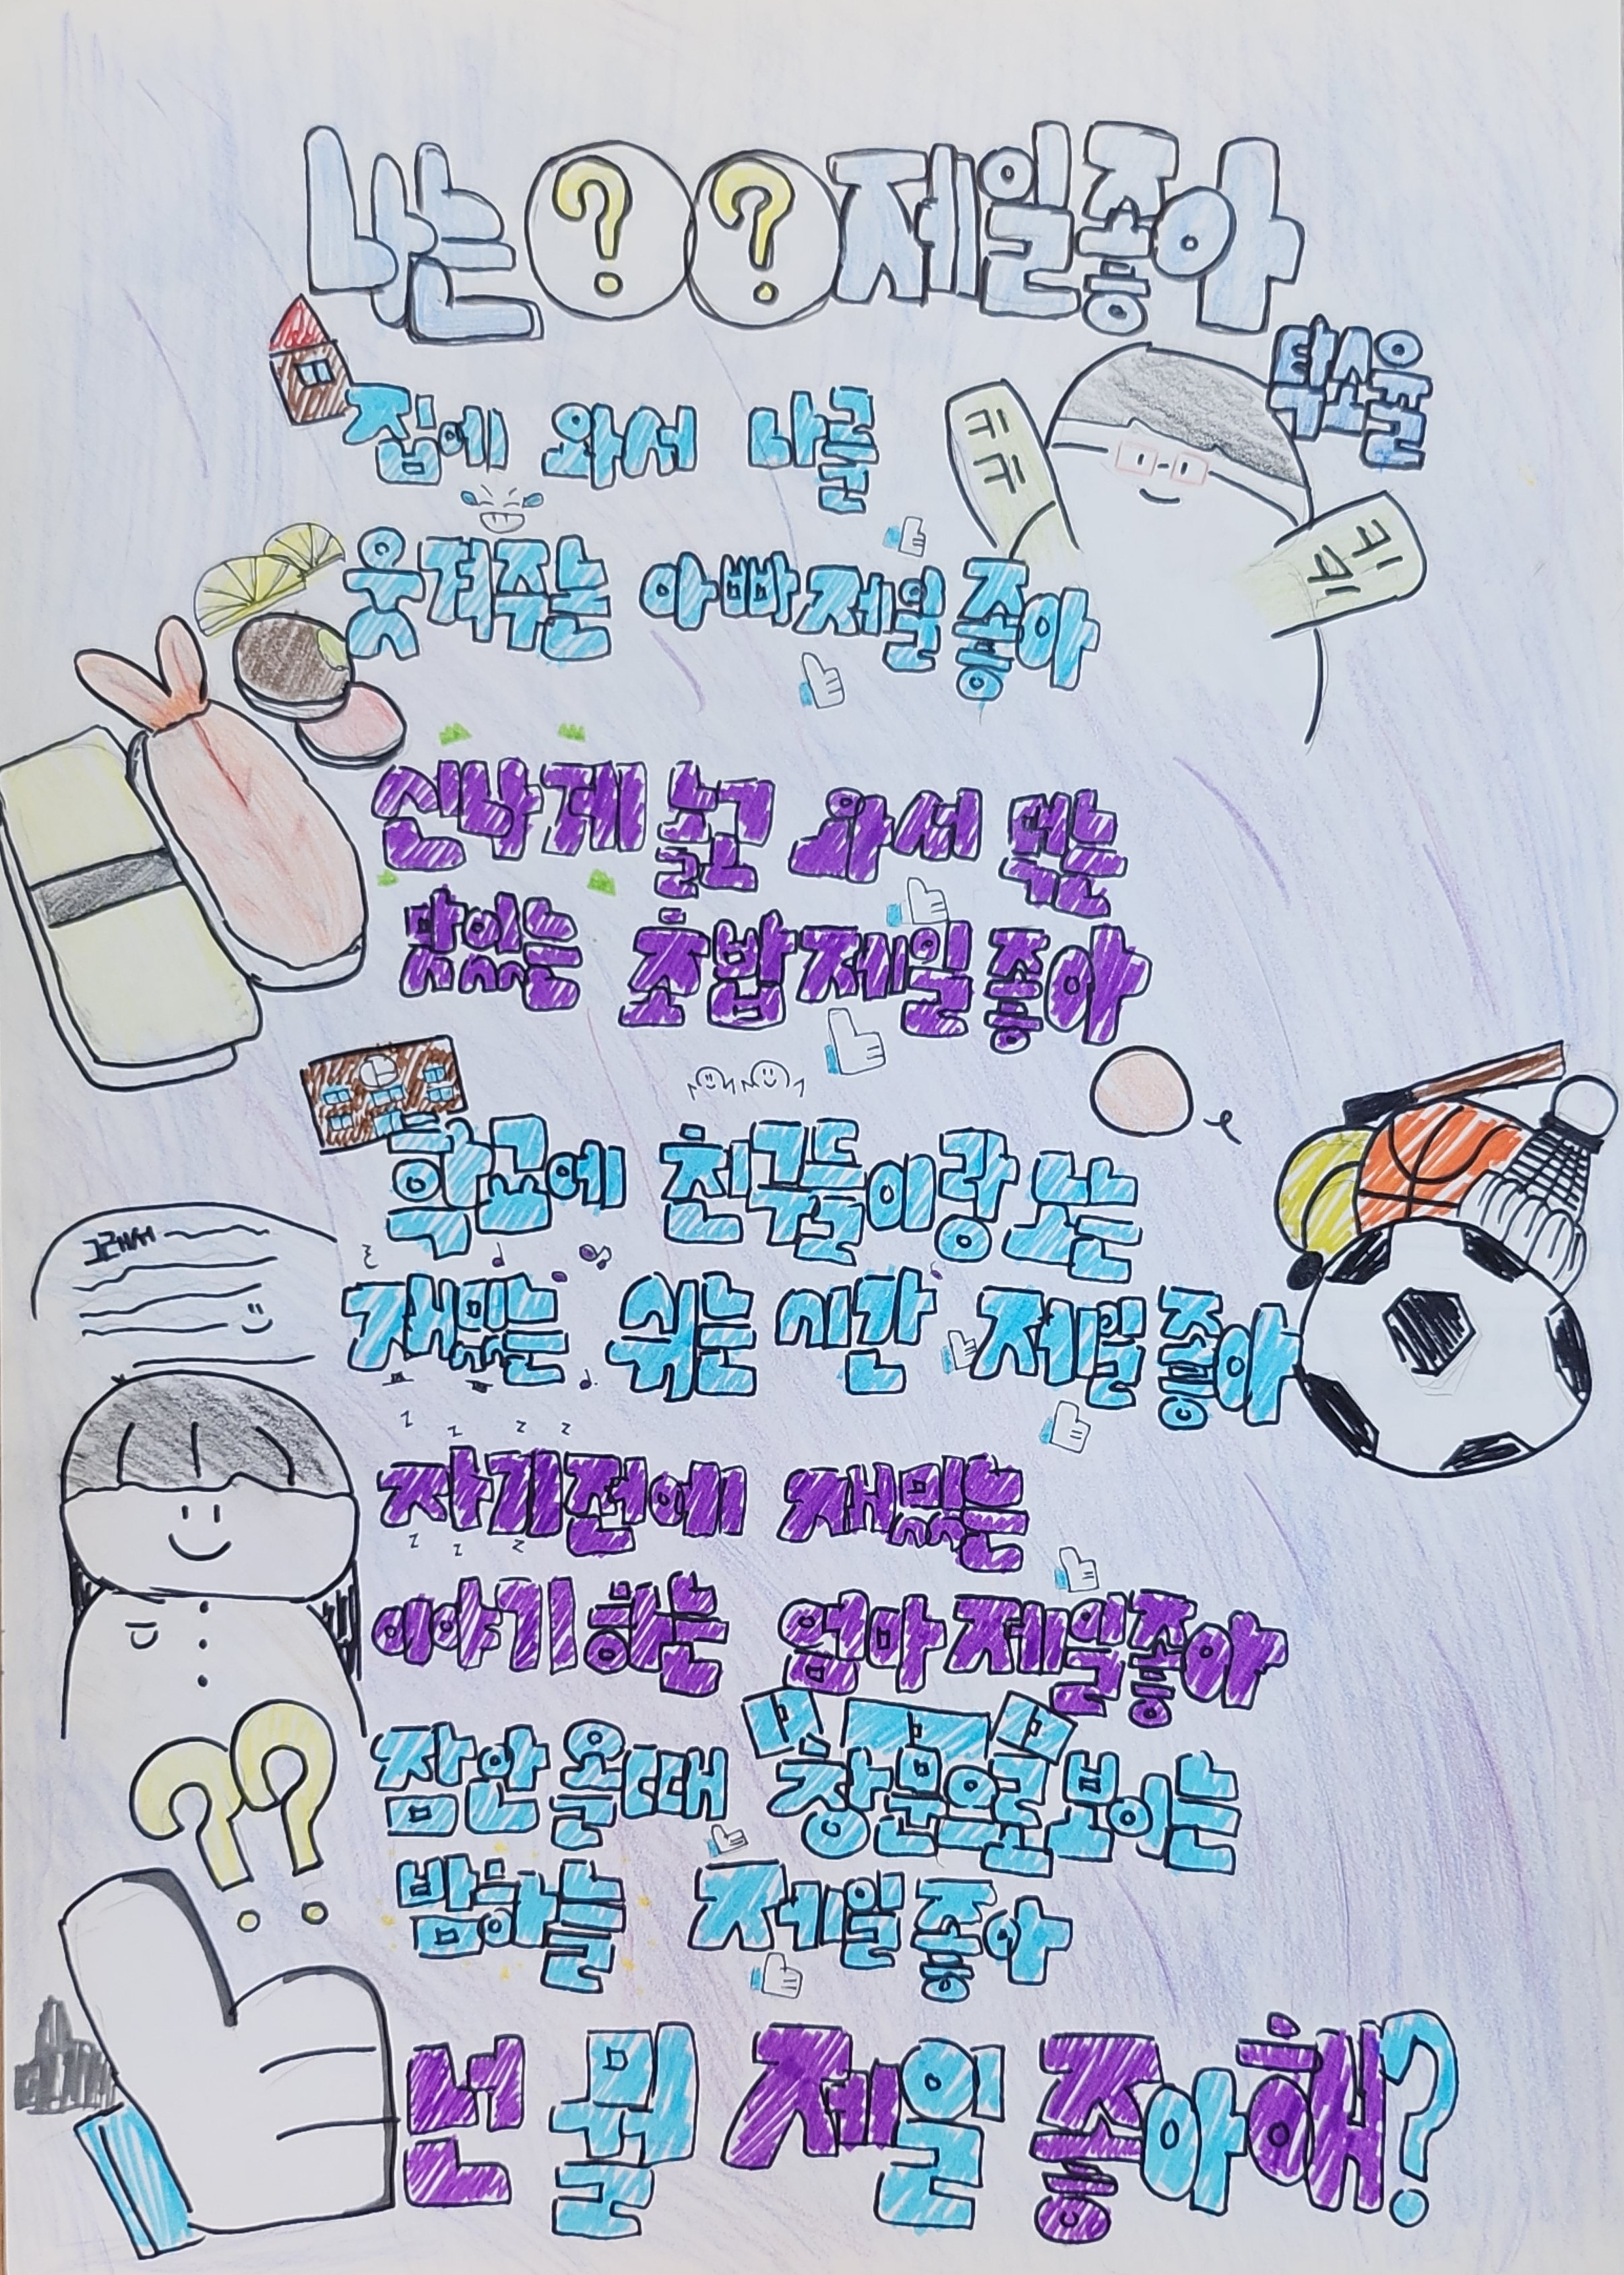 나는 ? ? 제일 좋아
탁소율
집에 와서 나를
키키
키키
웃겨주는 아빠 제일 좋아
신나게 놀고 와서 먹는
맛있는 초밥 제일 좋아
학교에 친구들이랑 노는
그래서
재밌는 쉬는 시간 제일 좋아
z z z z
자기전에 재밌는
z z z
이야기 하는 엄마 제일 좋아
잠 안 올 때 창문으로 보이는
??
밤하늘 제일 좋아
넌 뭘 제일 좋아해?